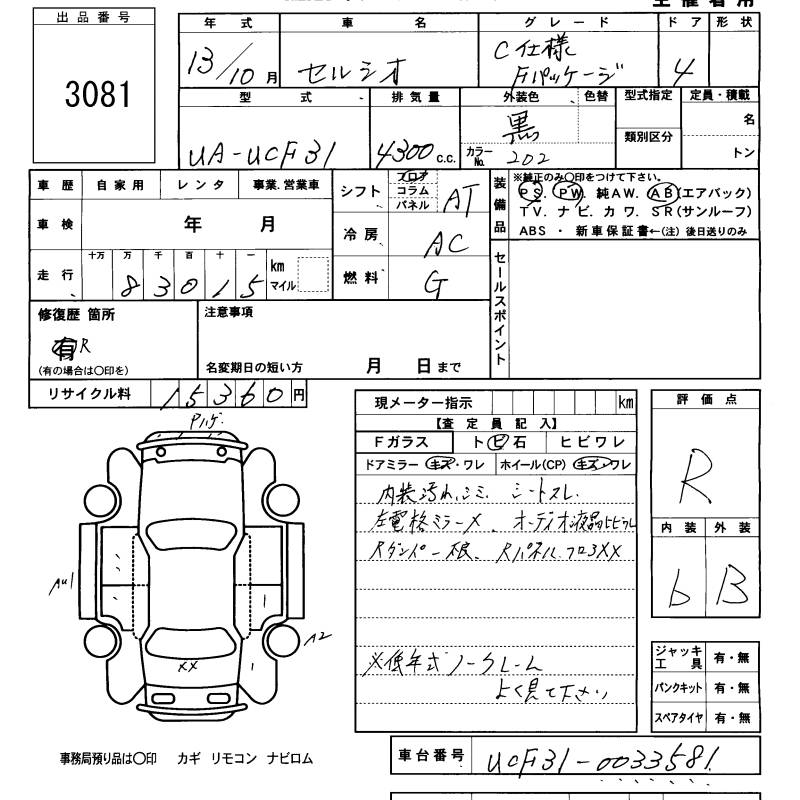 出品番号
3081
年式 車名 グレード ドア 形状
13/10月 セルシオ C仕様 Fパッケージ 4
型式 排気量 外装色 色替 型式指定 定員・積載
UA-UCF31 4300c.c. 黒 カラーNo. 202 類別区分 名 トン
車歴 自家用 レンタ 事業.営業車
車検 年 月
走行 十万 万 千 百 十 一 km マイル
83015
シフト フロア コラム パネル AT
冷房 AC
燃料 G
装備品
※純正のみ○印をつけて下さい。
PS. PW. 純AW. AB(エアバック)
TV. ナビ. カワ. SR(サンルーフ)
ABS ・ 新車保証書←(注) 後日送りのみ
セールスポイント
修復歴 箇所
有R
(有の場合は○印を)
注意事項
名変期日の短い方 月 日まで
リサイクル料 15360円
現メーター指示 km
【査定員記入】
Fガラス トビ石 ヒビワレ
ドアミラー キズ・ワレ ホイール(CP) キズ・ワレ
内装汚れ、シミ シートスレ
左電格ミラーX、オーディオ液晶ヒビワレ
Rダンパー根、Rパネル フロアXX
※低年式ノークレーム
よく見て下さい
評価点
R
内装 外装
b B
A41
A2
XX
ジャッキ工具 有・無
パンクキット 有・無
スペアタイヤ 有・無
事務局預り品は○印 カギ リモコン ナビロム
車台番号 UCF31-0033581